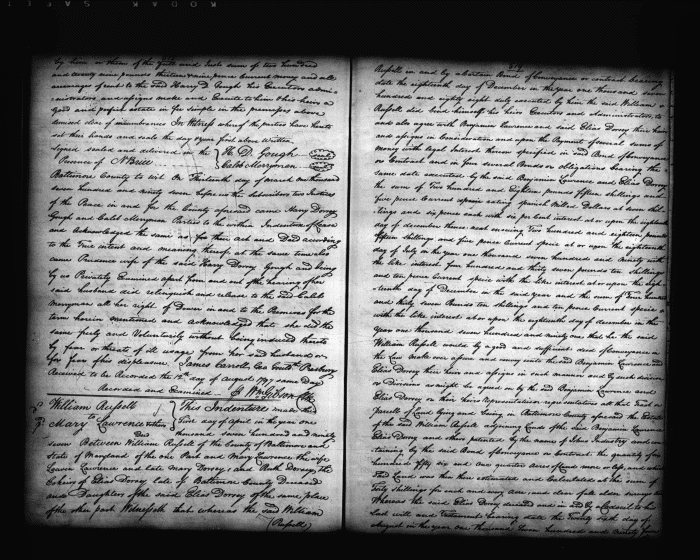 by him or them of the full and Just sum of two hundred
and twenty nine pounds thirteen nine pence Current money and all
arrearages of rent to the said Harry D. Gough his Executors admi-
nistrators and assigns make and Execute to him & his heirs a
good and perfect estate in fee simple in the premises above
demised clear of incumbrances In Witness whereof the parties have hereto
set their hands and seals the day & year first above written
Signed sealed and delivered in the H. D. Gough
Presence of N Brice Caleb Merryman
Baltimore County to wit On Thirteenth day of march one thousand
seven hundred and ninety seven before the Subscribers two Justices
of the Peace in and for the County aforesaid came Harry Dorsey
Gough and Caleb Merryman Parties to the within Indenture of Lease
and Acknowledged the same as for their act and Deed according
to the True intent and meaning thereof at the same time also
came Prudence wife of the said Harry Dorsey Gough and being
by us Privately Examined apart from and out of the hearing of her
said husband did relinquish and release to the said Caleb
Merryman all her right of Dower in and to the Premises for the
term herein mentioned and acknowledged that she did the
same freely and Voluntarily without being induced thereto
by fear or threats of ill usage from her said husband or
for fear of his displeasure James Carroll, Geo Goult Presbury
Received to be Recorded the 12th day of August 1797 same Day
Recorded and Examined Wm Gibson Clk
William Russell This Indenture made this
to
Mary Lawrence & others first day of april in the year one
thousand seven hundred and ninety
seven Between William Russell of the County of Baltimore and
State of Maryland of the one Part and Mary Lawrence the wife
Leaven Lawrence and late Mary Dorsey, and Ruth Dorsey the
Coheirs of Elias Dorsey late of Baltimore County Deceased
and Daughters of the said Elias Dorsey of the same place
of the other part Witnesseth that whereas the said William
(Russell)
Russell in and by a certain Bond of Conveyance or contract bearing
date the eighteenth day of December in the year one thousand seven
hundred and eighty eight duly executed by him the said William
Russell did bind himself his heirs Executors and Administrators, to
and also agree with Benjamin Lawrence and said Elias Dorsey their heirs
and assigns in Consideration and upon the Payment of several sums of
money with legal Interest thereon specified in said Bond of Conveyance
or Contract and in four several Bonds or Obligations bearing the
same date executed by the said Benjamin Lawrence and Elias Dorsey
the sum of Two hundred and Eighteen pounds fifteen shillings and
five pence Current specie
lings and six pence each with six per cent interest at or upon the eighteenth
day of december
fifteen shillings and five pence Current specie at or upon the eighteenth
day of July in the year one thousand seven hundred and Ninety with
the like interest four hundred and thirty seven pounds ten shillings
and ten pence Current specie with the like interest at or upon the eigh-
teenth day of December in the said year and the sum of Four hundred
and thirty seven Pounds ten shillings and ten pence Current specie
with the like interest at or upon the eighteenth day of december in the
year one thousand seven hundred and ninety one that he the said
William Russell would by good and sufficient deed of Conveyance in
the Law make over assure and convey unto the said Benjamin Lawrence and
Elias Dorsey their heirs and assigns in such manner and by such division
or Divisions as might be agreed on by the said Benjamin Lawrence and
Elias Dorsey or their heirs Representatives all that Tract or
Parcell of Land lying and being in Baltimore County aforesaid the Estate
of the said William Russell adjoining Lands of the said Benjamin Lawrence
Elias Dorsey and others patented by the name of Johns Industry and con-
taining by the said Bond of Conveyance or Contract the quantity four
hundred fifty six and One quarter acres of Land more or less, and which
said Land was then here estimated and Calculated at the sum of
Forty Shillings for each and every acre, and clear
Whereas the said Elias Dorsey deceased in and by a Codicil to his
Last will and Testament bearing date the Twenty sixth day of
August in the year one thousand seven hundred and Ninety four